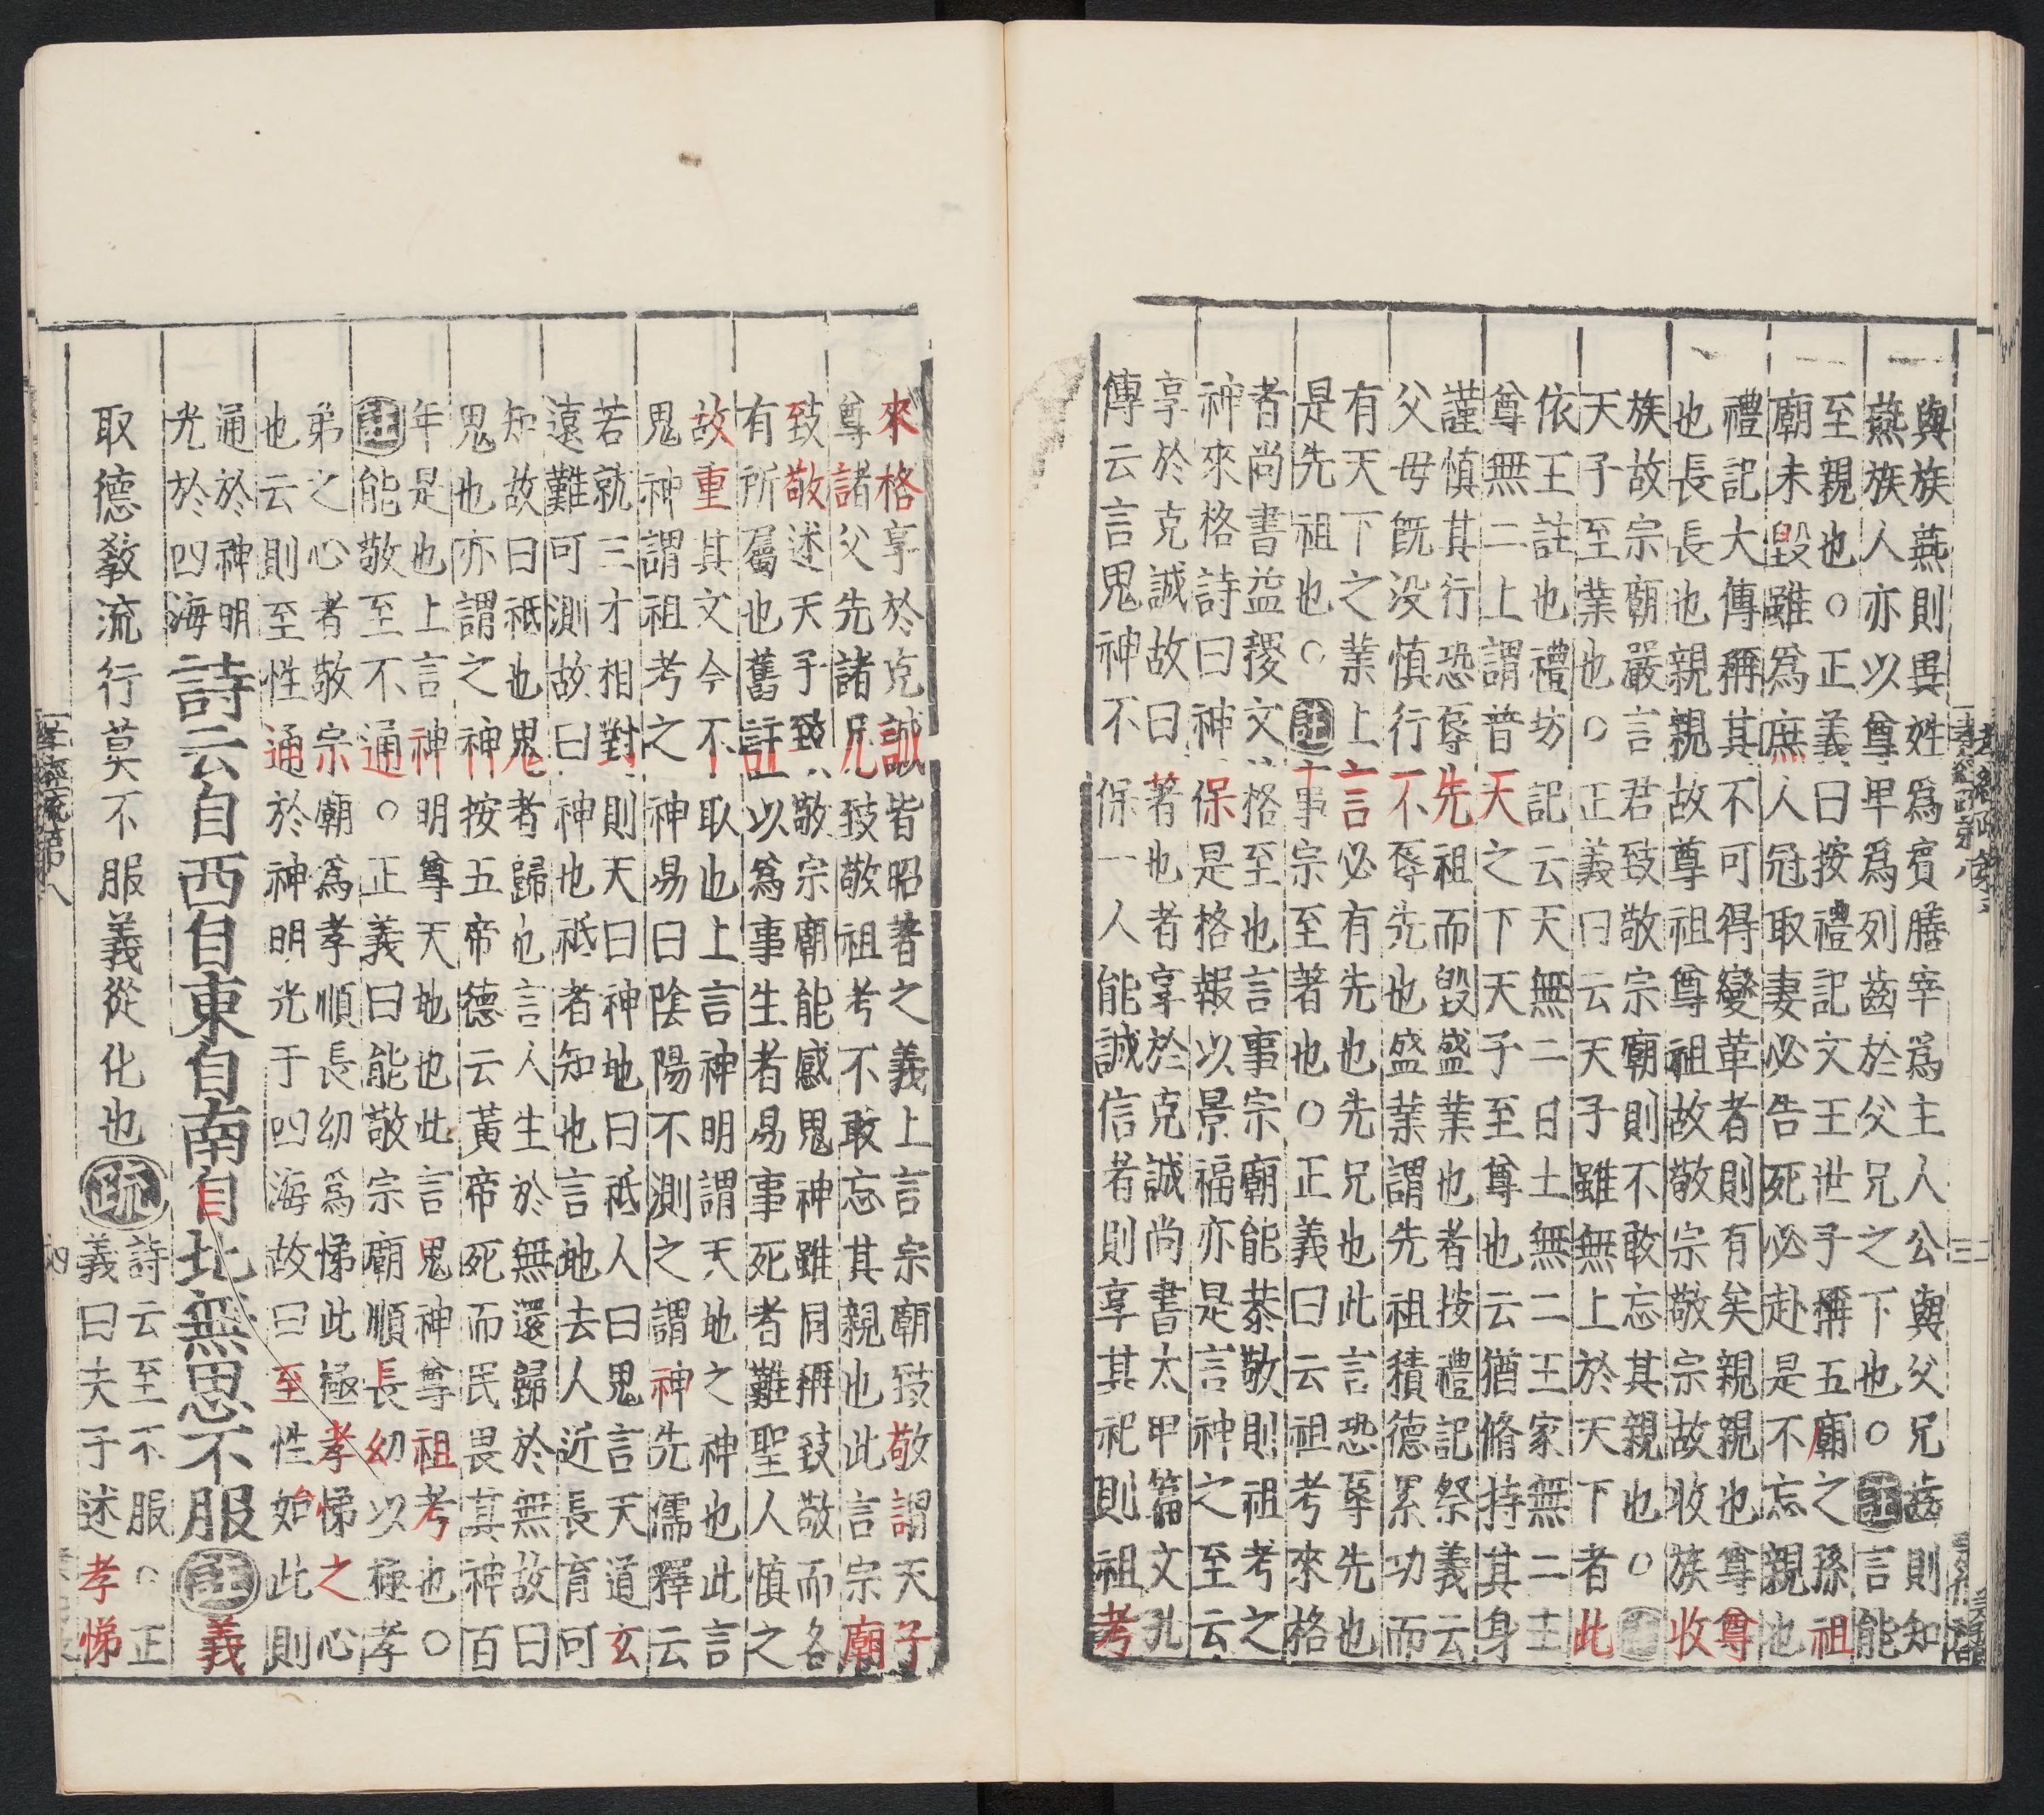 與族燕則異姓爲賓膳宰爲主人公與父兄齒則知
燕族人亦以尊卑爲列齒於父兄之下也○註言能
至親也○正義曰按禮記文王世子稱五廟之孫祖
廟未毀雖爲庶人冠取妻必告死必赴是不忘親也
禮記大傳稱其不可得變革者則有矣親親也尊尊
也長長也親親故尊祖尊祖故敬宗敬宗故收族收
族故宗廟嚴言君致敬宗廟則不敢忘其親也○註
天子至業也○正義曰云天子雖無上於天下者此
依王註也禮坊記云天無二日土無二王家無二主
尊無二上謂普天之下天子至尊也云猶脩持其身
謹慎其行恐辱先祖而毀盛業也者按禮記祭義云
父母既没慎行不辱先也盛業謂先祖積德累功而
有天下之業上言必有先也先兄也此言恐辱先也
是先祖也○註事宗至著也○正義曰云祖考來格
者尚書益稷文格至也言事宗廟能恭敬則祖考之
神來格詩曰神保是格報以景福亦是言神之至云
享於克誠故曰著也者享於克誠尚書太甲篇文孔
傳云言鬼神不保一人能誠信者則享其祀則祖考
來格享於克誠皆昭著之義上言宗廟致敬謂天子
尊諸父先諸兄致敬祖考不敢忘其親也此言宗廟
致敬述天子致敬宗廟能感鬼神雖同稱致敬而各
有所屬也舊註以爲事生者易事死者難聖人慎之
故重其文今不取也上言神明謂天地之神也此言
鬼神謂祖考之神易曰陰陽不測之謂神先儒釋云
若就三才相對則天曰神地曰祇人曰鬼言天道玄
遠難可測故曰神也祇者知也言地去人近長育可
知故曰祇也鬼者歸也言人生於無還歸於無故曰
鬼也亦謂之神按五帝德云黃帝死而民畏其神百
年是也上言神明尊天地也此言鬼神尊祖考也○
註能敬至不通○正義曰能敬宗廟順長幼以極孝
弟之心者敬宗廟爲孝順長幼爲悌此極孝悌之心
也云則至性通於神明光于四海故曰至性如此則
通於神明
光於四海
詩云自西自東自南自北無思不服註義
取德敎流行莫不服義從化也疏
詩云至不服○正
義曰夫子述孝悌